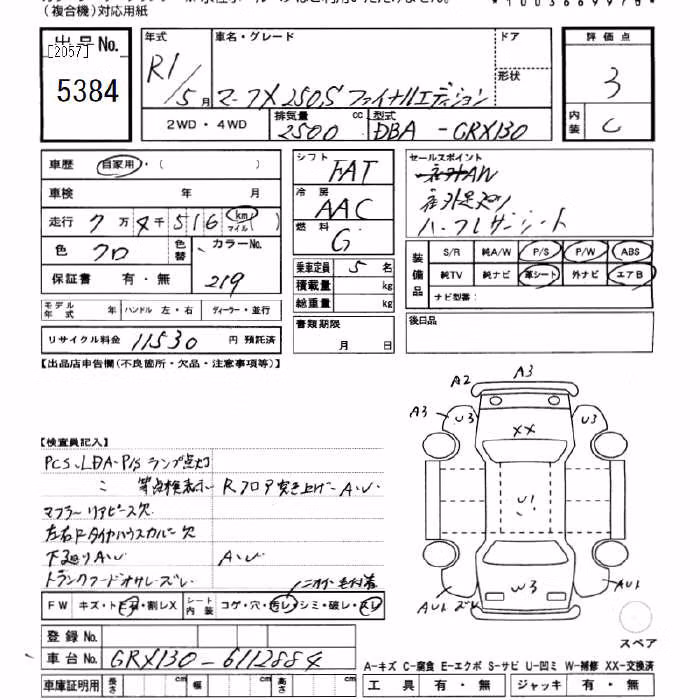 （複合機）対応用紙
出品No.
[2057]
5384
年式
R1/5月
車名・グレード
マークX 250S ファイナルエディション
ドア
形状
2WD・4WD
排気量
2500 cc
型式
DBA-GRX130
評価点
3
内装
C
車歴 自家用・( )
車検 年 月
走行 7万4千516 km マイル ( )
色 クロ
色替
カラーNo.
219
保証書 有・無
モデル年式 年
ハンドル 左・右
ディーラー・並行
リサイクル料金 11530 円 預託済
シフト
FAT
冷房
AAC
燃料
G
乗車定員 5名
積載量 kg
総重量 kg
書類期限
月 日
セールスポイント
ハーフレザーシート
装備品
S/R 純A/W P/S P/W ABS
純TV 純ナビ 革シート 外ナビ エアB
ナビ型番：
後日品
【出品店申告欄(不良箇所・欠品・注意事項等)】
【検査員記入】
PCS、LDA・P/S ランプ点灯
〃 等点検表示
Rフロア突き上げ A・U
マフラー リアピース欠
左右FタイヤハウスカバーL欠
下廻りA・U
A・U
トランクフードオサレ・ズレ
ニオイ・毛付着
FW キズ・トビ石・割レX
シート内装 コゲ・穴・汚レ・シミ・破レ・スレ
登録No.
車台No. GRX130-6112884
車庫証明用 長さ cm 幅 cm 高さ cm
A2
A3
A3
U3
U3
XX
U1
W3
AUトズレ
AU1
スペア
A-キズ C-腐食 E-エクボ S-サビ U-凹ミ W-補修 XX-交換済
工具 有・無 ジャッキ 有・無